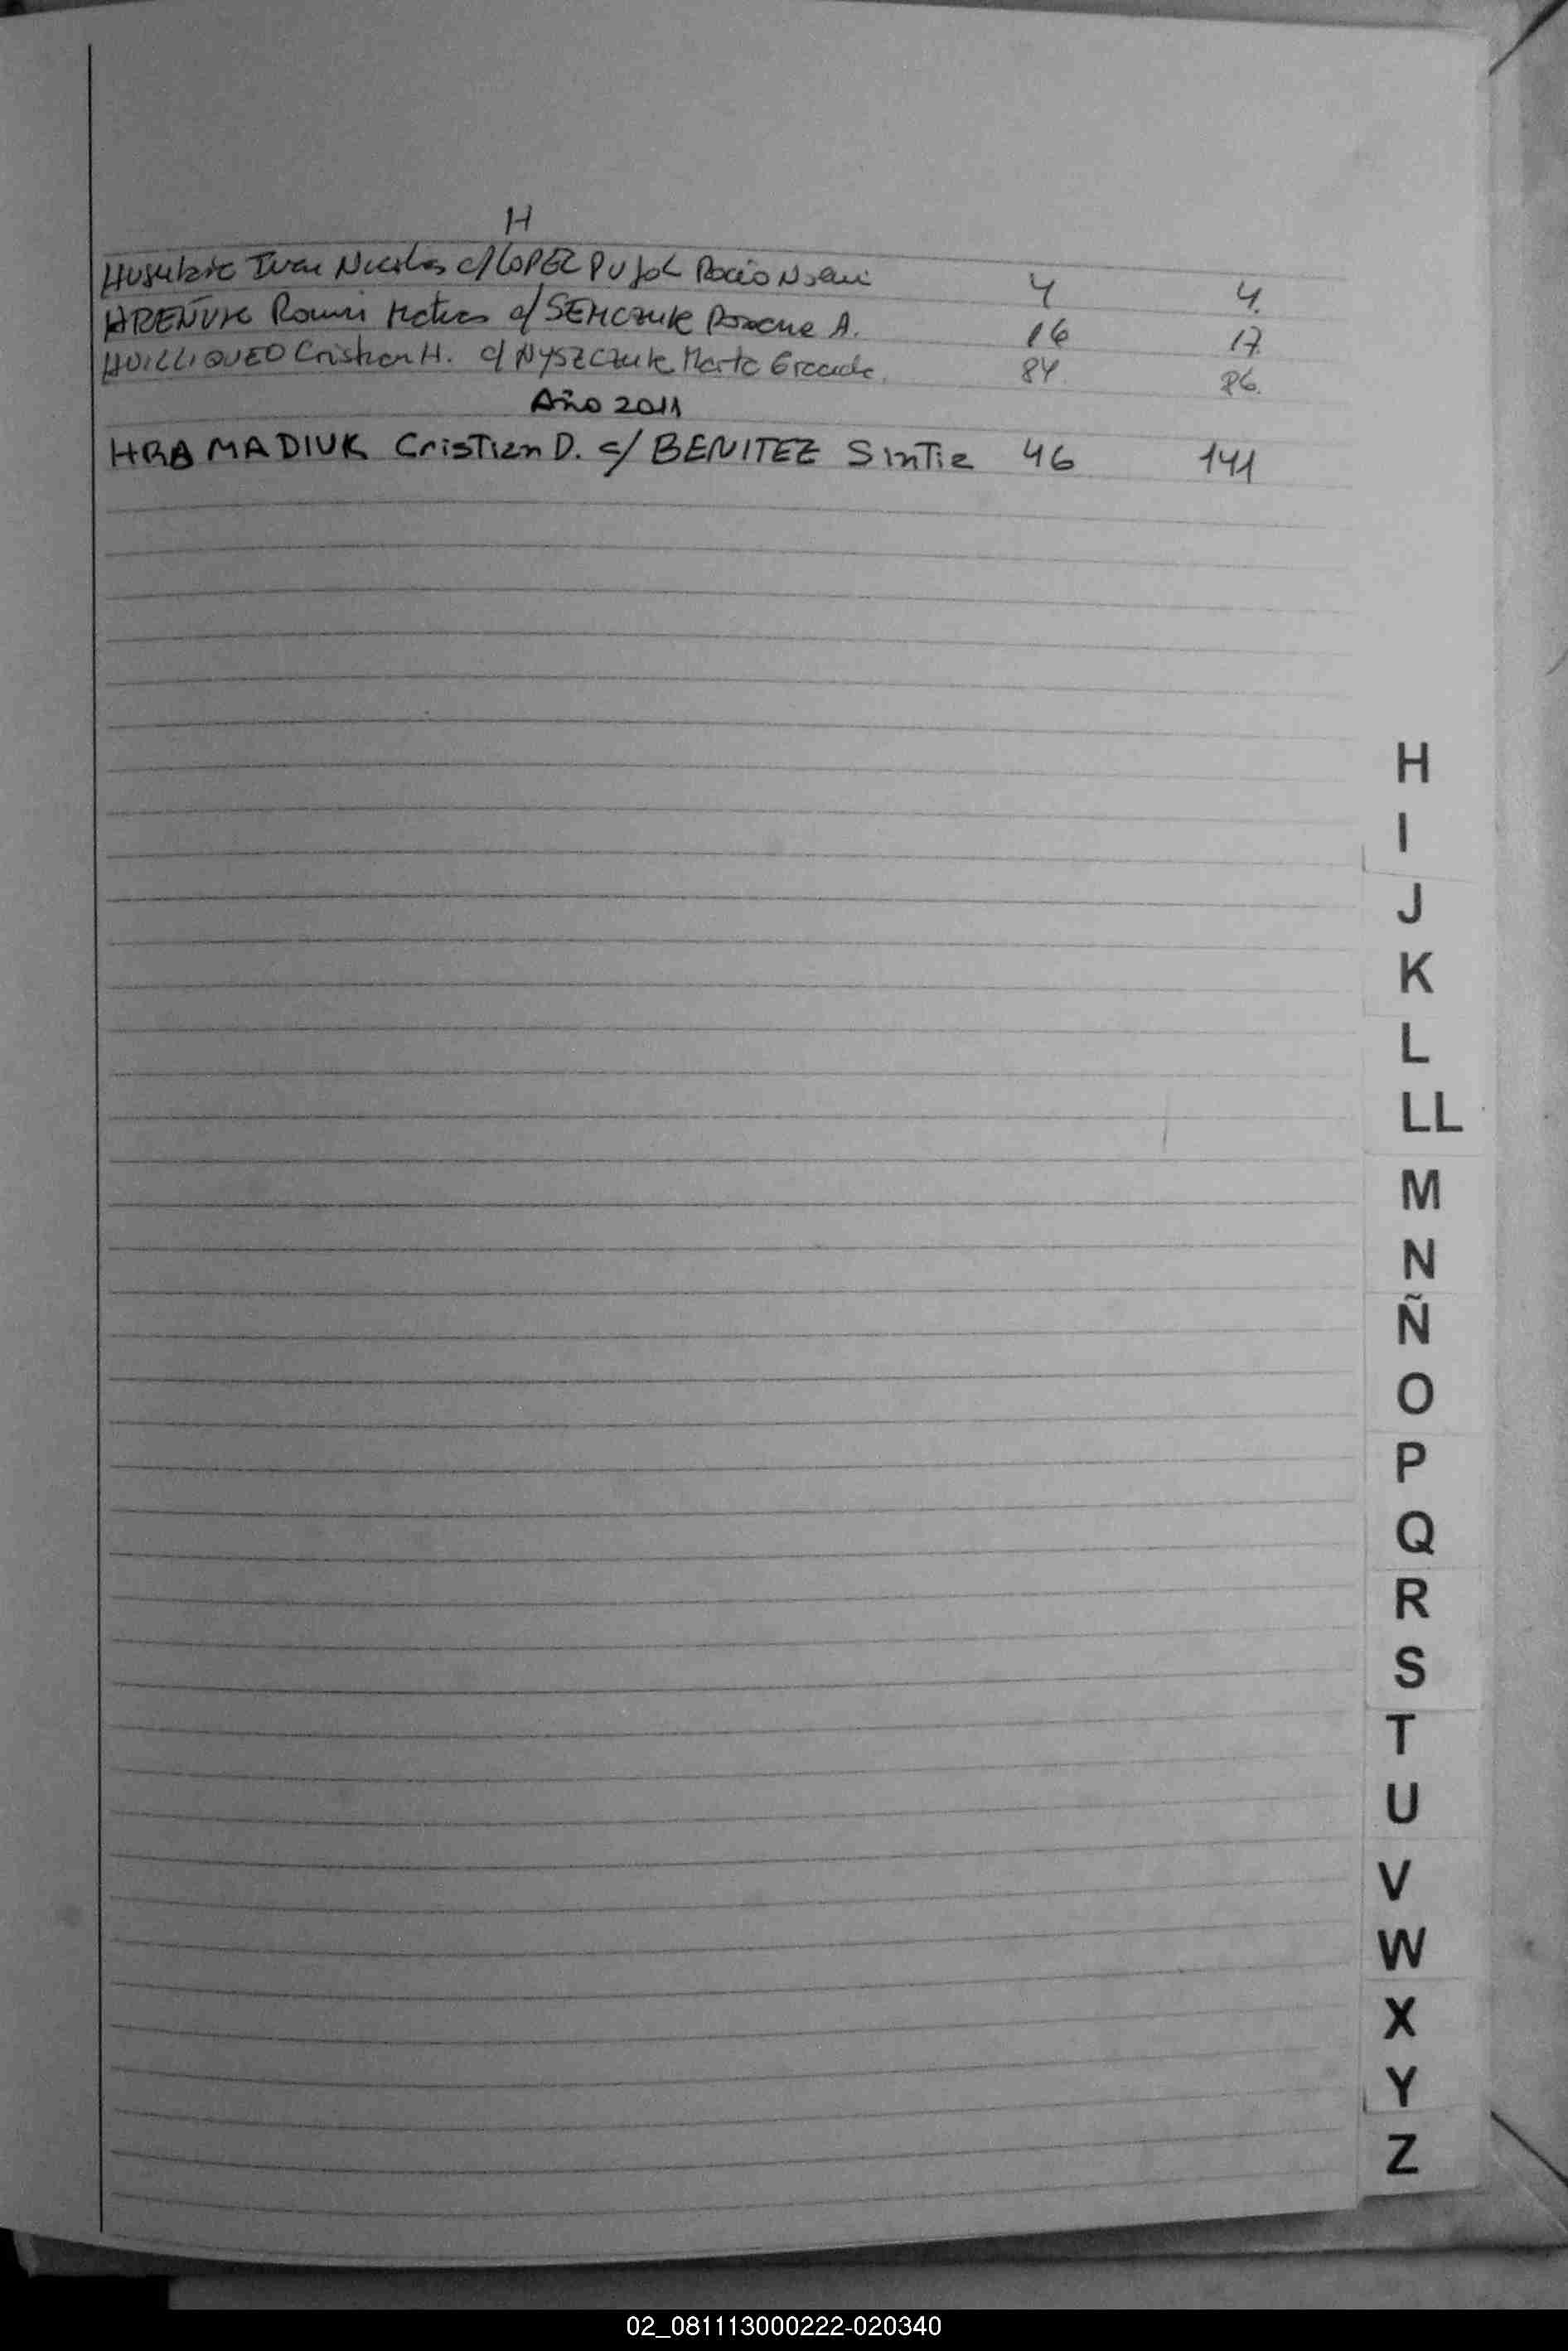 H
Ivan Nicolas c/ LOPEZ PUJOL Rocio Noemi 4 4.
HREÑUK Matias c/ SEMCZUK A. 16 17.
HUILLIQUEO Cristian H. c/ NYSZCZUK Marta Graciela. 84. 86.
Año 2011
HRAMADIUK Cristian D. c/ BENITEZ Sintia 46 141
H
I
J
K
L
LL
M
N
Ñ
O
P
Q
R
S
T
U
V
W
X
Y
Z
02_081113000222-020340